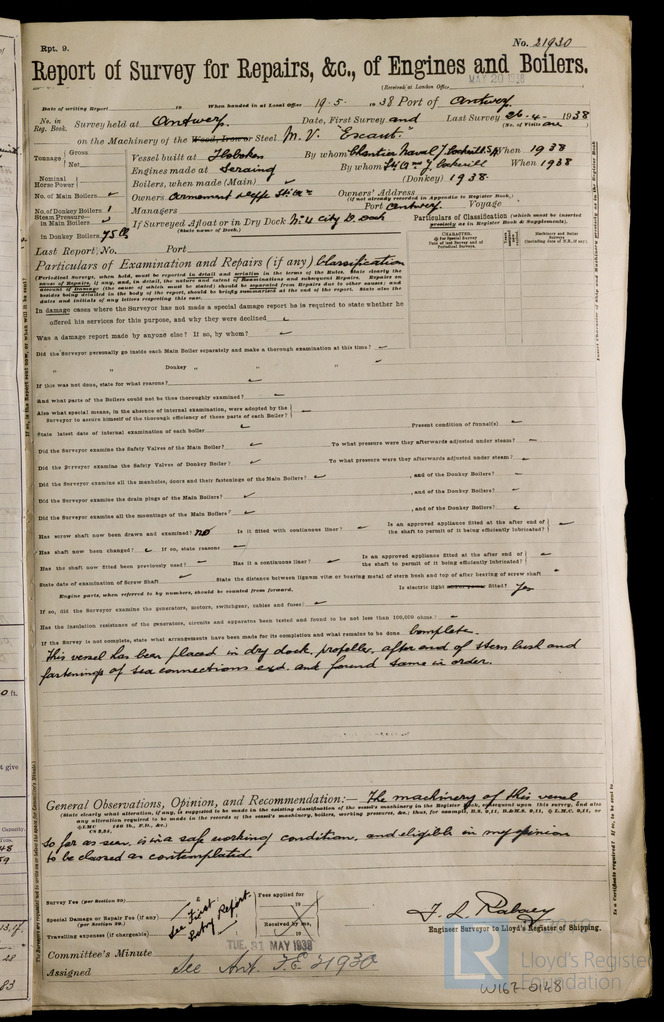 Rpt. 9.
No. 21930
Report of Survey for Repairs, &c., of Engines and Boilers.
MAY 20 1938
(Received at London Office
Date of writing Report 19 When handed in at Local Office 19-5- 1938 Port of Antwerp
No. in Reg. Book. Survey held at Antwerp. Date, First Survey and Last Survey 26-4- 1938
(No. of Visits one)
on the Machinery of the Wood, Iron or Steel M.V. "Escaut"
Tonnage Gross Net
Vessel built at Hoboken By whom Chantier Naval J. Cockerill S.A. When 1938
Engines made at Seraing By whom J. Cockerill When 1938
Nominal Horse Power
Boilers, when made (Main) (Donkey) 1938
No. of Main Boilers
Owners Owners' Address
(if not already recorded in Appendix to Register Book.)
No. of Donkey Boilers 1
Managers Port Antwerp Voyage
Steam Pressure— in Main Boilers
in Donkey Boilers 75 lb
If Surveyed Afloat or in Dry Dock No. 4 City D. Dock
(State name of Dock.)
Particulars of Classification (which must be inserted precisely as in Register Book & Supplements).
Last Report No. Port
Particulars of Examination and Repairs (if any) Classification
In damage cases where the Surveyor has not made a special damage report he is required to state whether he
offered his services for this purpose, and why they were declined
Was a damage report made by anyone else? If so, by whom?
Did the Surveyor personally go inside each Main Boiler separately and make a thorough examination at this time?
" " Donkey " " "
If this was not done, state for what reasons?
And what parts of the Boilers could not be thus thoroughly examined?
Also what special means, in the absence of internal examination, were adopted by the
Surveyor to assure himself of the thorough efficiency of those parts of each Boiler?
State latest date of internal examination of each boiler Present condition of funnel(s)
Did the Surveyor examine the Safety Valves of the Main Boiler? To what pressure were they afterwards adjusted under steam?
Did the Surveyor examine the Safety Valves of Donkey Boiler? To what pressure were they afterwards adjusted under steam?
Did the Surveyor examine all the manholes, doors and their fastenings of the Main Boilers? , and of the Donkey Boilers?
Did the Surveyor examine the drain plugs of the Main Boilers? , and of the Donkey Boilers?
Did the Surveyor examine all the mountings of the Main Boilers? , and of the Donkey Boilers?
Has screw shaft now been drawn and examined? no Is it fitted with continuous liner? Is an approved appliance fitted at the after end of the shaft to permit of it being efficiently lubricated?
Has shaft now been changed? If so, state reasons
Has the shaft now fitted been previously used? Has it a continuous liner? Is an approved appliance fitted at the after end of the shaft to permit of it being efficiently lubricated?
State date of examination of Screw Shaft State the distance between lignum vitæ or bearing metal of stern bush and top of after bearing of screw shaft
Engine parts, when referred to by numbers, should be counted from forward. Is electric light fitted? Yes
If so, did the Surveyor examine the generators, motors, switchgear, cables and fuses?
Has the insulation resistance of the generators, circuits and apparatus been tested and found to be not less than 100,000 ohms?
If the Survey is not complete, state what arrangements have been made for its completion and what remains to be done complete.
This vessel has been placed in dry dock, propeller, after end of stern bush and
fastenings of sea connections exd. and found same in order.
General Observations, Opinion, and Recommendation:— The machinery of this vessel
so far as seen, is in a safe working condition, and eligible in my opinion
to be classed as contemplated.
Survey Fee (per Section 29)
Special Damage or Repair Fee (if any)
(per Section 29.)
Travelling expenses (if chargeable)
See First Entry Report.
Fees applied for
19
Received by me,
19
Engineer Surveyor to Lloyd's Register of Shipping.
Committee's Minute TUE. 31 MAY 1938
Assigned See Ant. F.E. 21930
Lloyd's Register
Foundation
W162-0148